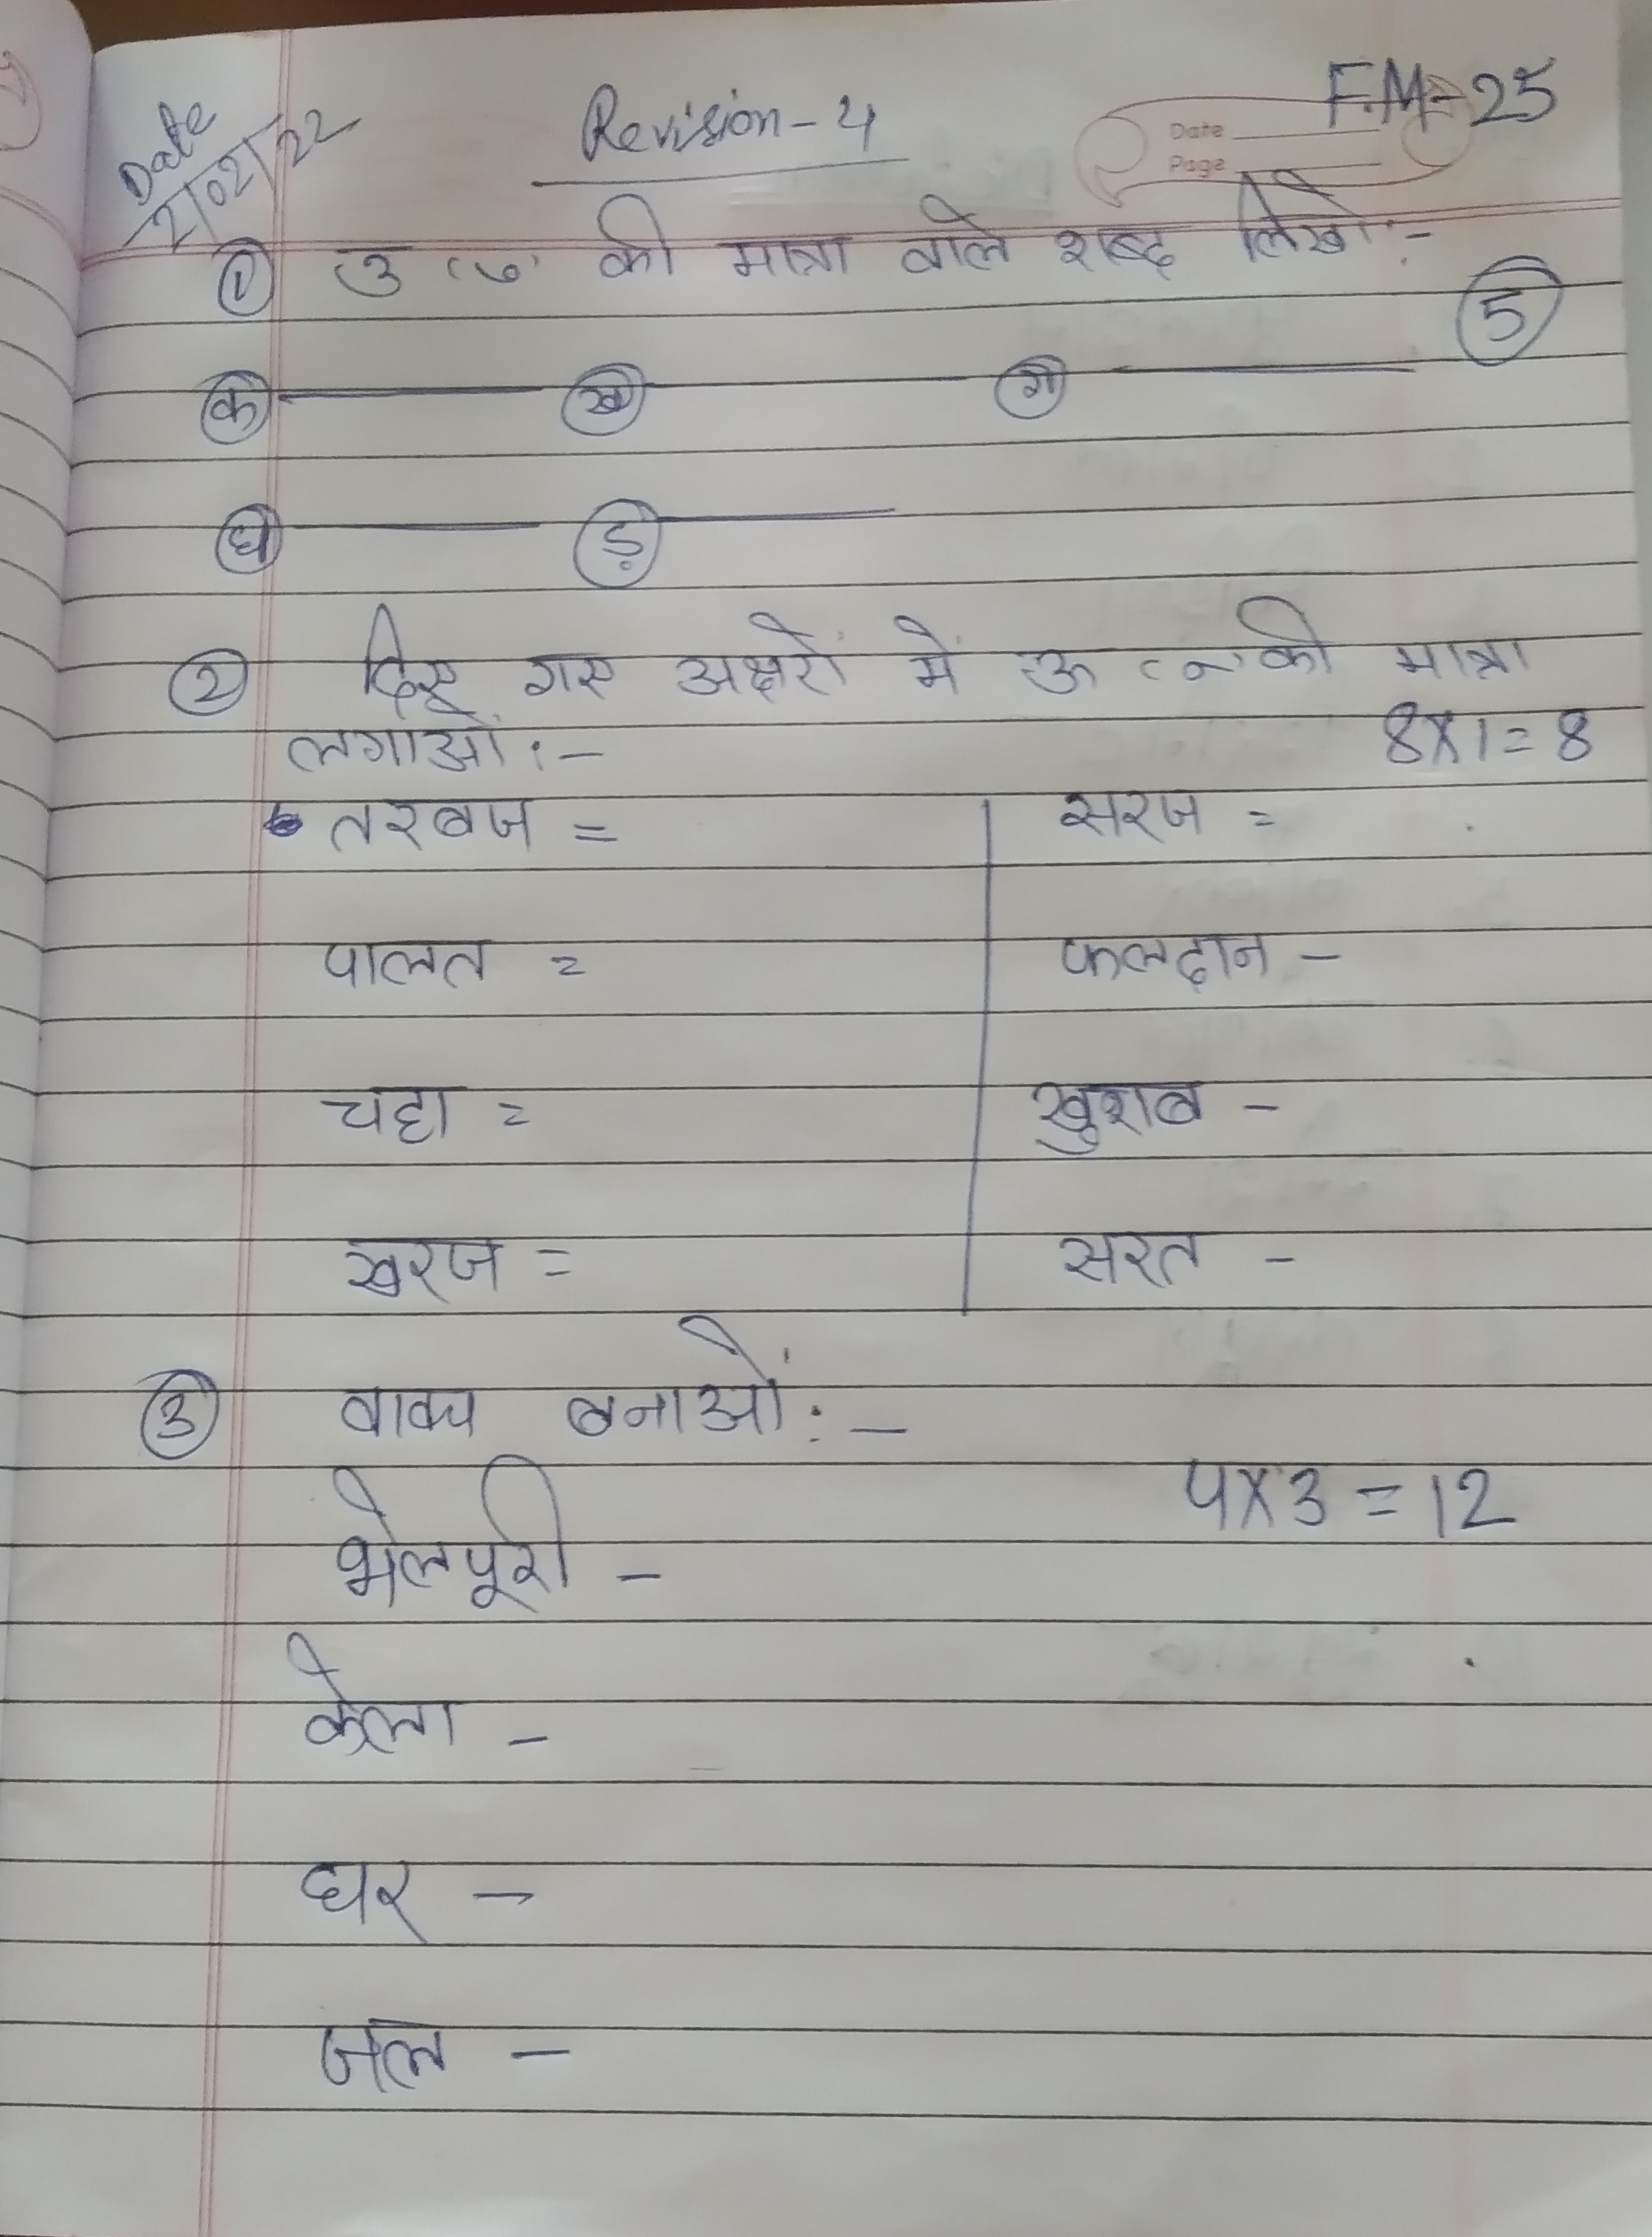 Date
2/02/22
Revision-4
F.M-25
Date
Page
① उ ( ु ) की मात्रा वाले शब्द लिखो :-
5
क ख ग
घ ङ
② दिए गए अक्षरों में ऊ ( ू ) की मात्रा
लगाओं :-
8x1=8
तरबज = सरज =
पालत = फलदान -
चहा = खुशब -
खरज = सरत -
③ वाक्य बनाओं :-
4x3=12
भेलपूरी -
केला -
घर -
जल -